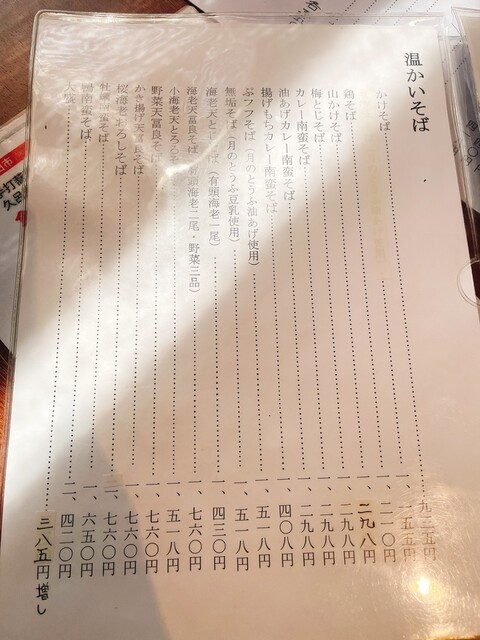 温かいそば
かけそば 九二五円
一、一五五円
鶏そば 一、二一〇円
山かけそば 一、二九八円
梅とじそば 一、二九八円
カレー南蛮そば 一、二九八円
油あげカレー南蛮そば 一、二九八円
揚げもちカレー南蛮そば 一、四〇八円
ぷフフそば（月のとうふ油あげ使用） 一、五一八円
無垢そば（月のとうふ豆乳使用） 一、五一八円
海老天とじそば（有頭海老一尾） 一、四三〇円
海老天富良そば（有頭海老二尾・野菜三品） 一、七六〇円
小海老天とろろそば 一、五一八円
野菜天富良そば 一、七六〇円
かき揚げ天富良そば 一、七六〇円
桜海老おろしそば 一、七六〇円
南蛮そば 一、六五〇円
鴨南蛮そば 二、四二〇円
大盛 三八五円増し